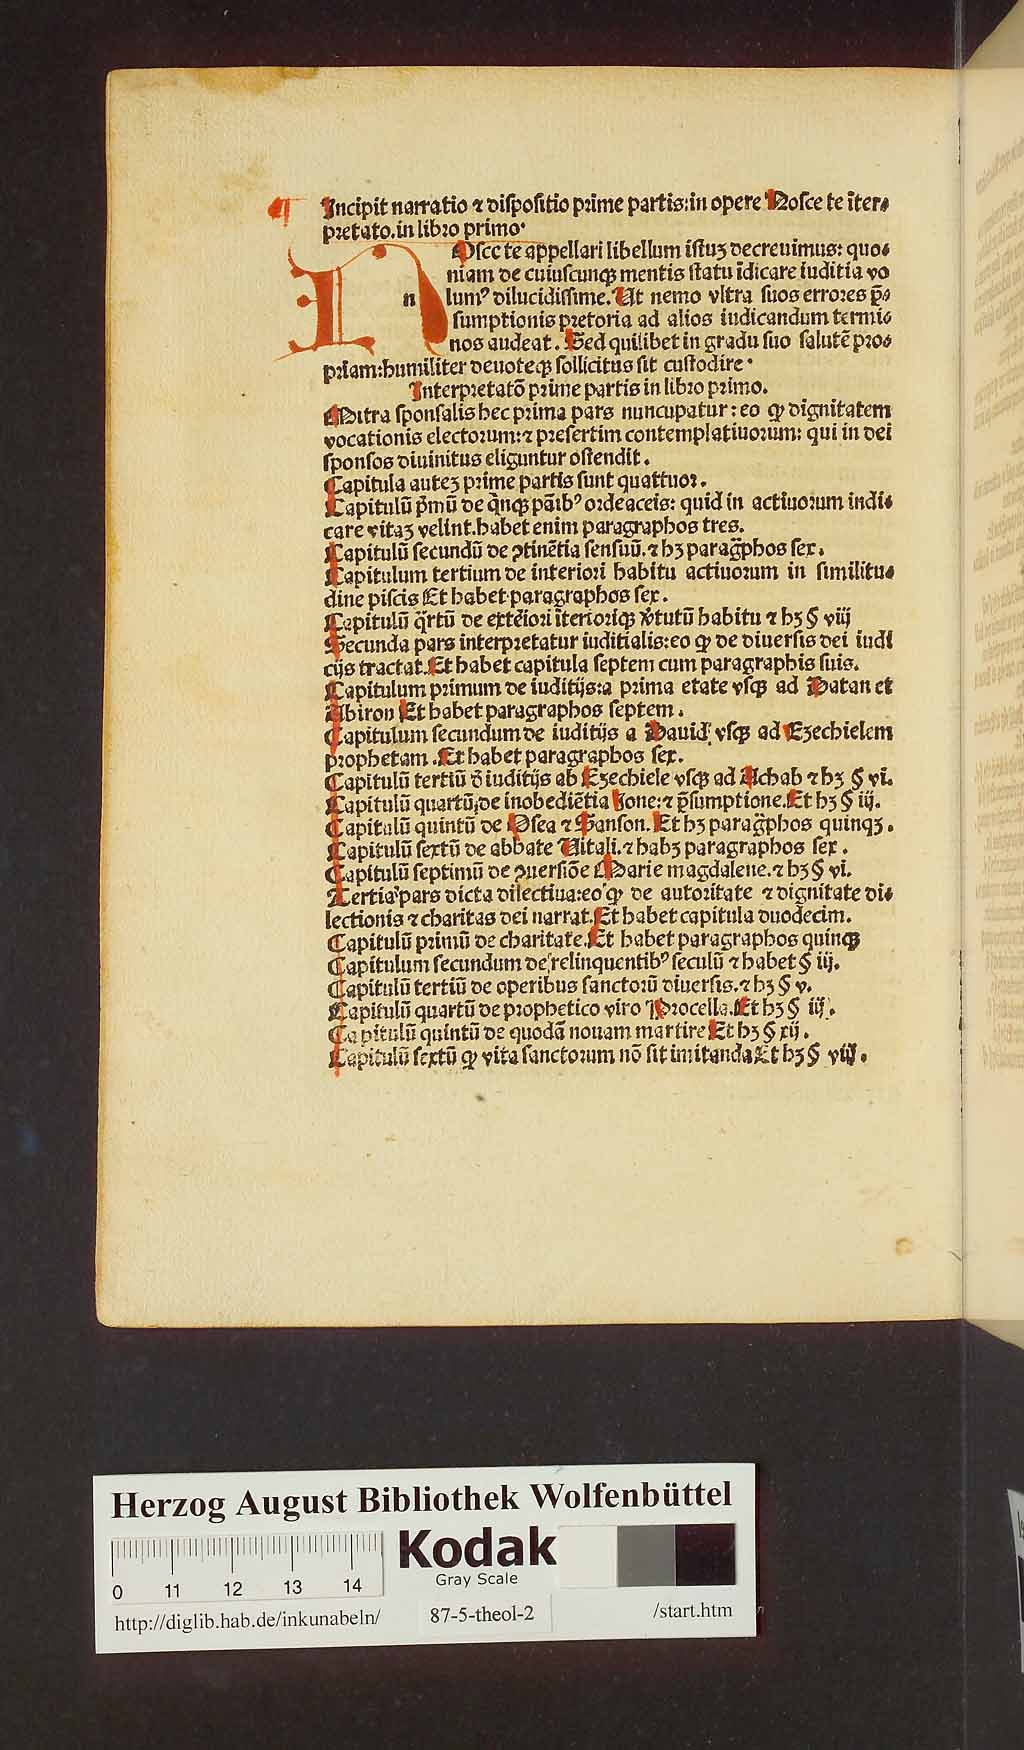 ¶ Incipit narratio ⁊ dispositio prime partis: in opere Nosce te īter⸗
pretato. in libro primo·
nOsce te appellari libellum istuꝫ decreuimus: quo⸗
niam de cuiuscunqꝫ mentis statu īdicare iuditia vo
lumꝰ dilucidissime. Ut nemo vltra suos errores p̄⸗
sumptionis pretoria ad alios iudicandum termi⸗
nos audeat. Sed quilibet in gradu suo salutē pro⸗
priam: humiliter deuoteqꝫ sollicitus sit custodire·
Interpretatō prime partis in libro primo.
Mitra sponsalis hec prima pars nuncupatur: eo ꝙ dignitatem
vocationis electorum: ⁊ presertim contemplatiuorum: qui in dei
sponsos diuinitus eliguntur ostendit.
Capitula auteꝫ prime partis sunt quattuor.
Capitulū pͥmū de qͥnqꝫ pāibꝰ ordeaceis: quid in actiuorum indi⸗
care vitaꝫ velint. habet enim paragraphos tres.
Capitulū secundū de ꝯtinētia sensuū. ⁊ hꝫ paragͣphos sex.
Capitulum tertium de interiori habitu actiuorum in similitu⸗
dine piscis Et habet paragraphos sex.
Capitulū qͣrtū de exteriori īterioriqꝫ v̓tutū habitu ⁊ hꝫ § viij
Secunda pars interpretatur iuditialis: eo ꝙ de diuersis dei iudi
cijs tractat. Et habet capitula septem cum paragraphis suis.
Capitulum primum de iuditijs: a prima etate vsqꝫ ad Datan et
Abiron Et habet paragraphos septem.
Capitulum secundum de iuditijs a Dauid, vsqꝫ ad Ezechielem
prophetam. Et habet paragraphos sex.
Capitulū tertiū d̄ iuditijs ab Ezechiele vsqꝫ ad Achab ⁊ hꝫ § vi.
Capitulū quartū, de inobediētia Jone: ⁊ p̄sumptione. Et hꝫ § iij.
Capitulū quintū de Osea ⁊ Sanson. Et hꝫ paragͣphos quinqꝫ.
Capitulū sextū de abbate Uitali. ⁊ habꝫ paragraphos sex.
Capitulū septimū de ꝯuersiōe Marie magdalene. ⁊ hꝫ § vi.
Tertia pars dicta dilectiua: eo ꝙ de autoritate ⁊ dignitate di⸗
lectionis ⁊ charitas dei narrat. Et habet capitula duodecim.
Capitulū primū de charitate. Et habet paragraphos quinqꝫ
Capitulum secundum de relinquentibꝰ seculū ⁊ habet § iij.
Capitulū tertiū de operibus sanctorū diuersis. ⁊ hꝫ § v.
Capitulū quartū de prophetico viro Procella. Et hꝫ § iij.
Capitulū quintū de quodā nouam martire Et hꝫ § xij.
Capitulū sextū ꝙ vita sanctorum nō sit imitanda Et hꝫ § viij.
Herzog August Bibliothek Wolfenbüttel
Kodak
Gray Scale
0 11 12 13 14
http://diglib.hab.de/inkunabeln/
87-5-theol-2
/start.htm